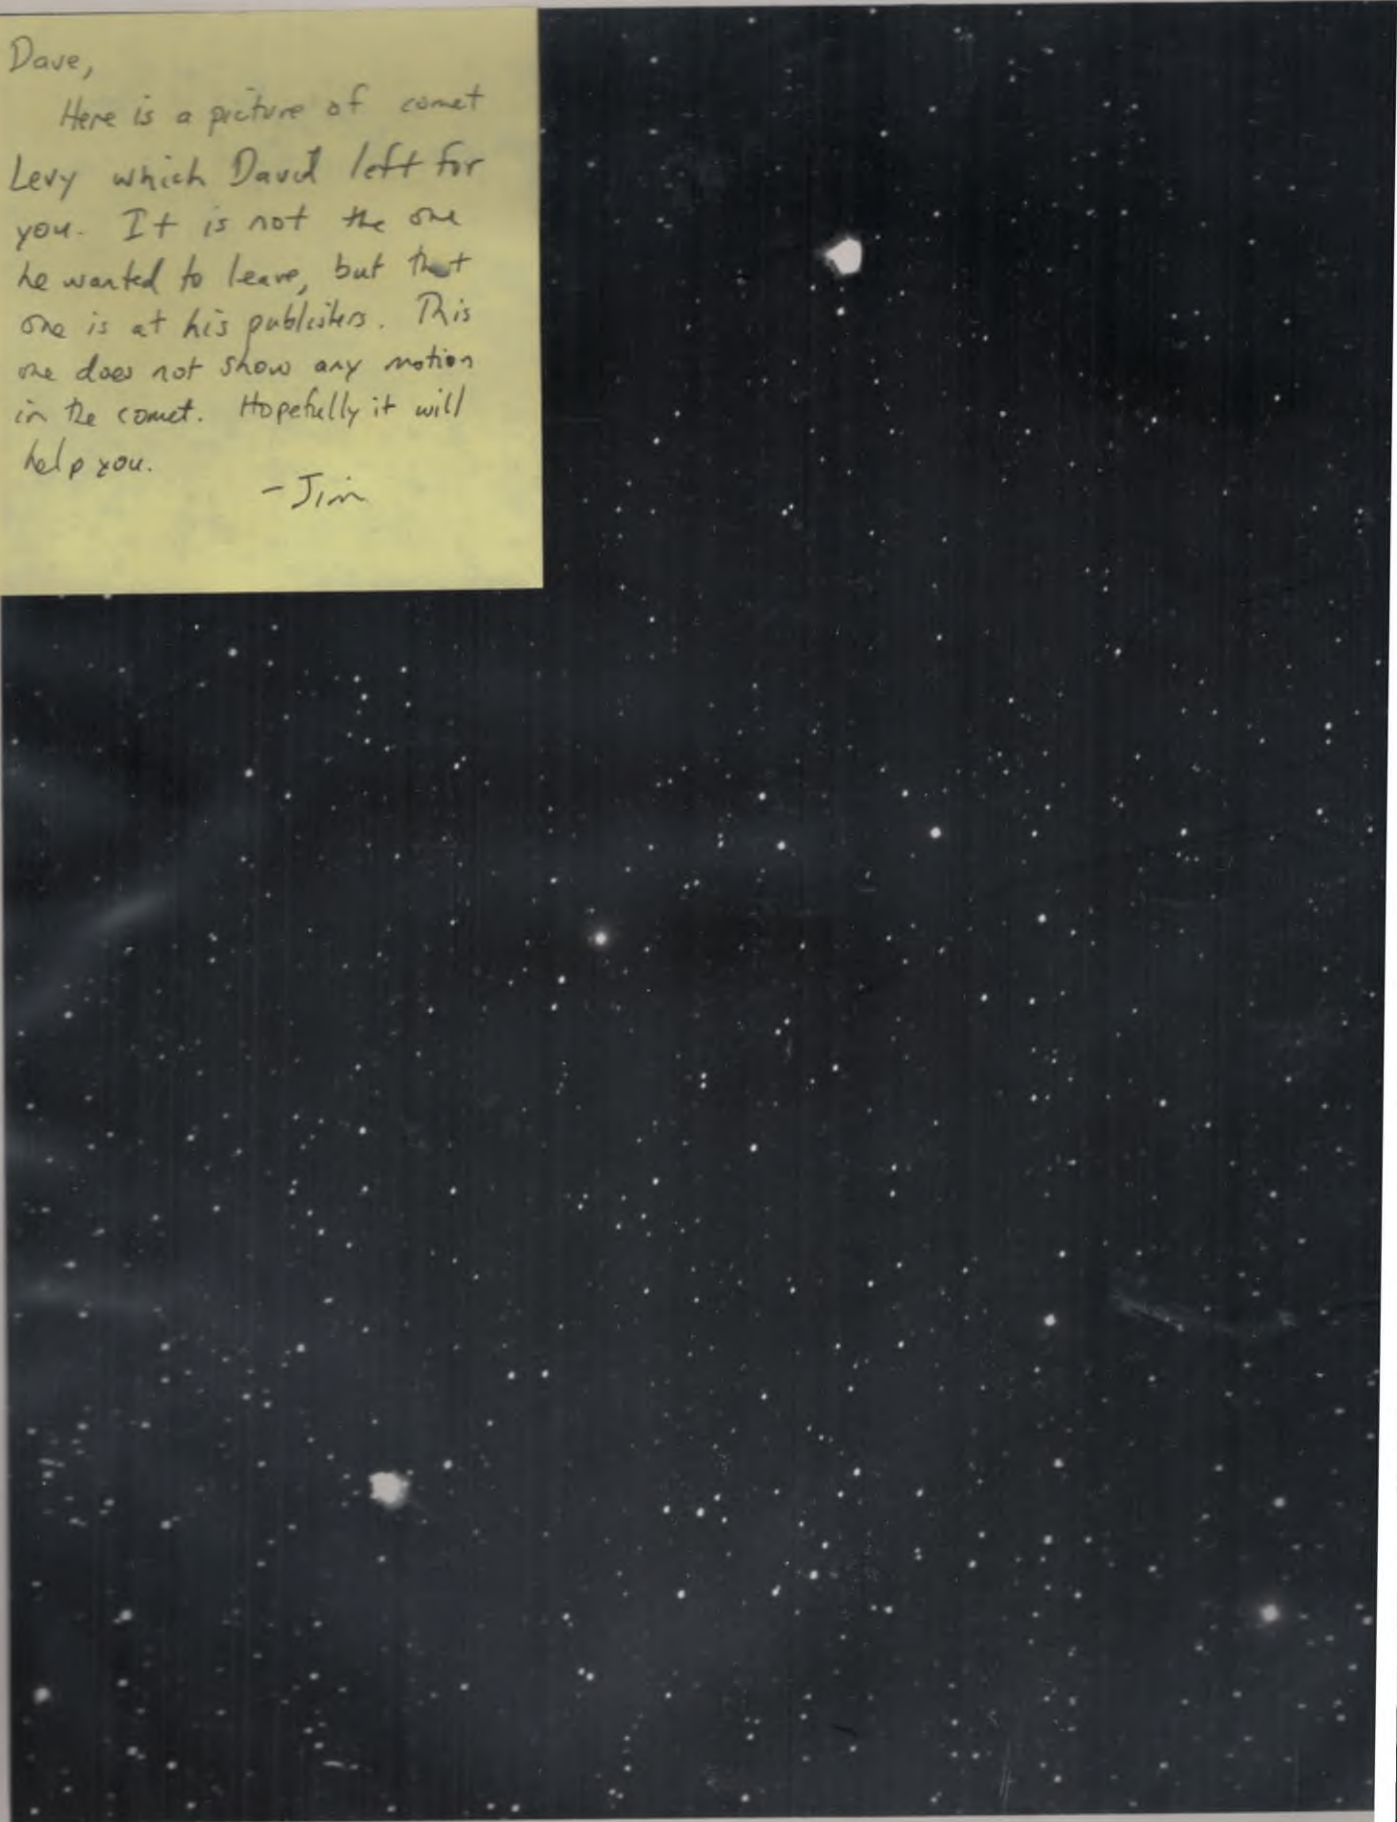 Dave,
Here is a picture of comet
Levy which David left for
you. It is not the one
he wanted to leave, but that
one is at his publishers. This
one does not show any motion
in the comet. Hopefully it will
help you.
-Jim